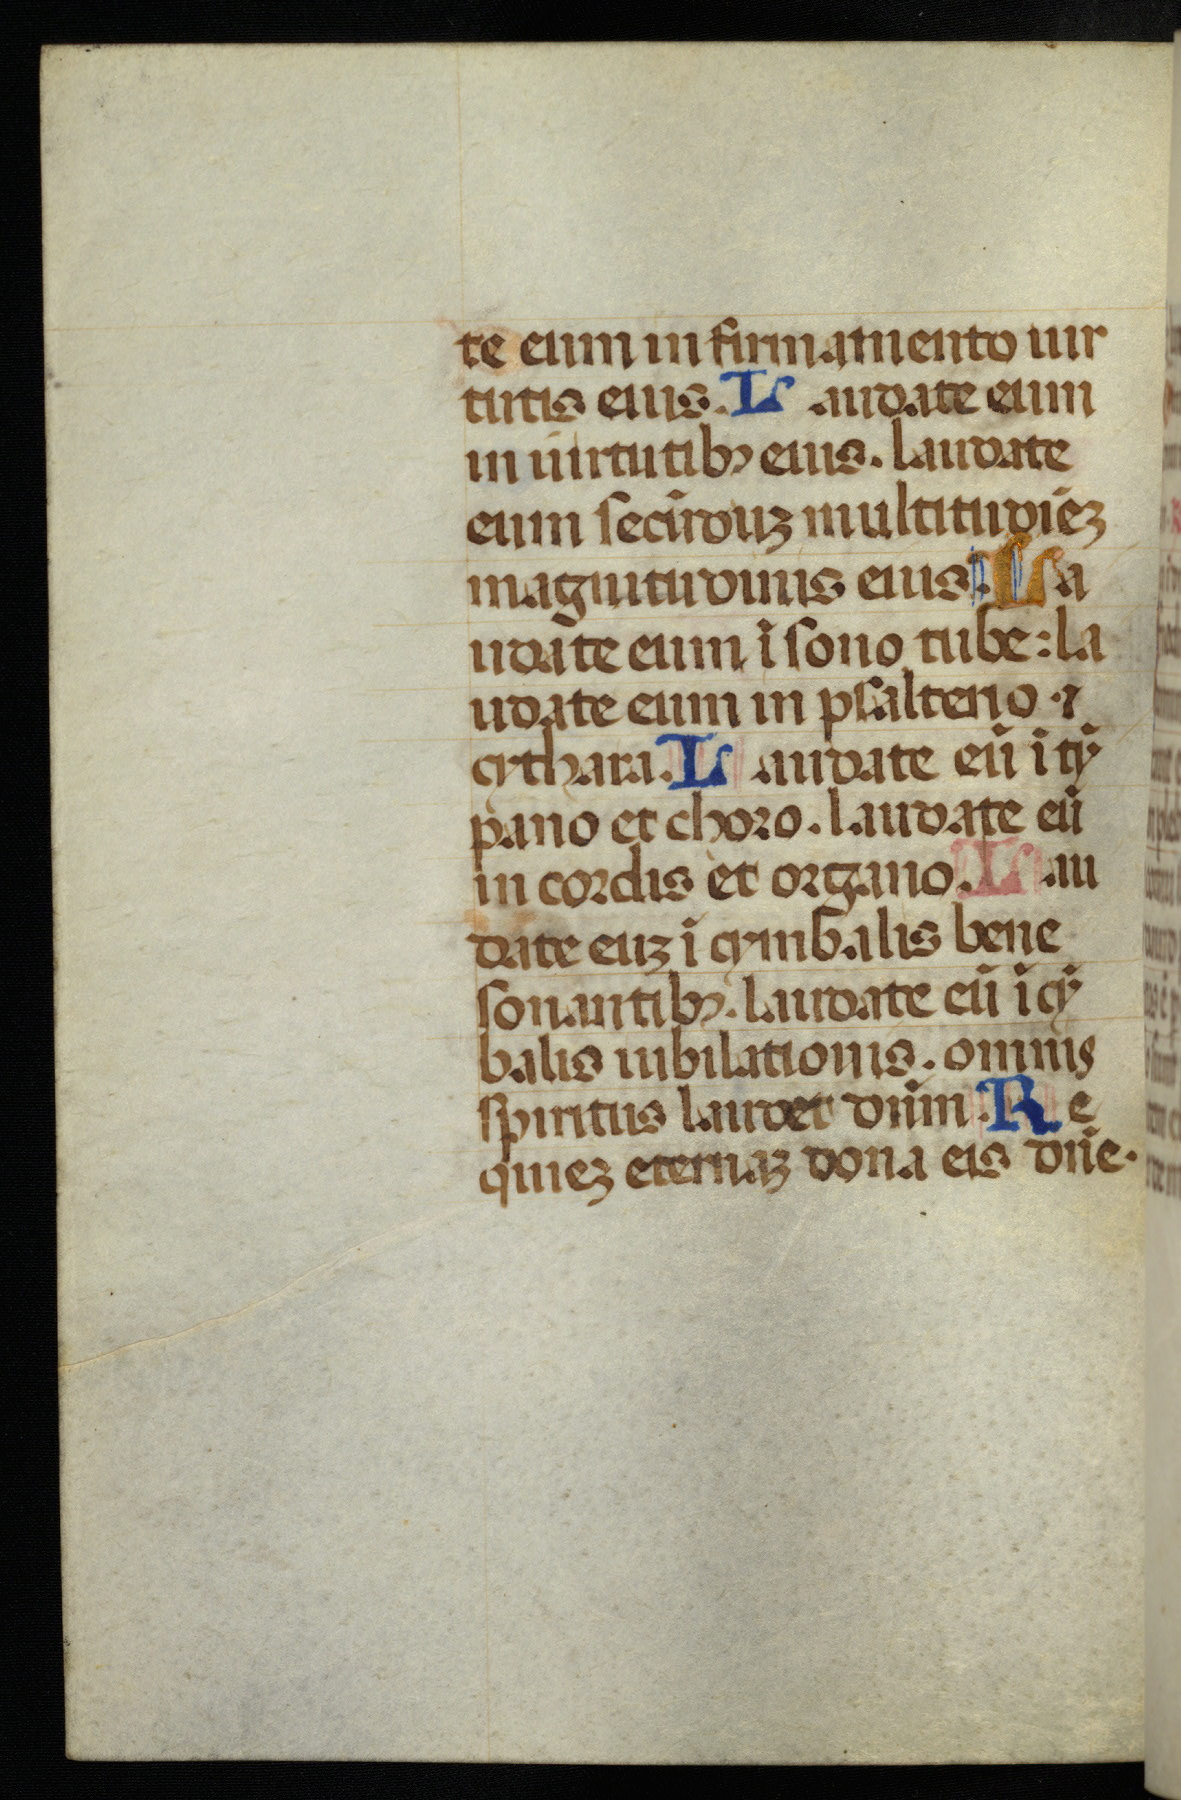 te eum in firmamento uir
tutis eius. Laudate eum
in uirtutibꝫ eius. laudate
eum secūduꝫ multitudīeꝫ
magnitudinis eius. La
udate eum ī sono tube: la
udate eum in psalterio ⁊
cythara. Laudate eū ī tȳ
pano et choro. laudate eū
in cordis et organo. Lau
date euꝫ ī cymbalis bene
sonantibꝫ. laudate eū ī cȳ
balis iubilationis. omnis
spiritus laudet dūm. Re
quieꝫ eternaꝫ dona eis dn̄e.